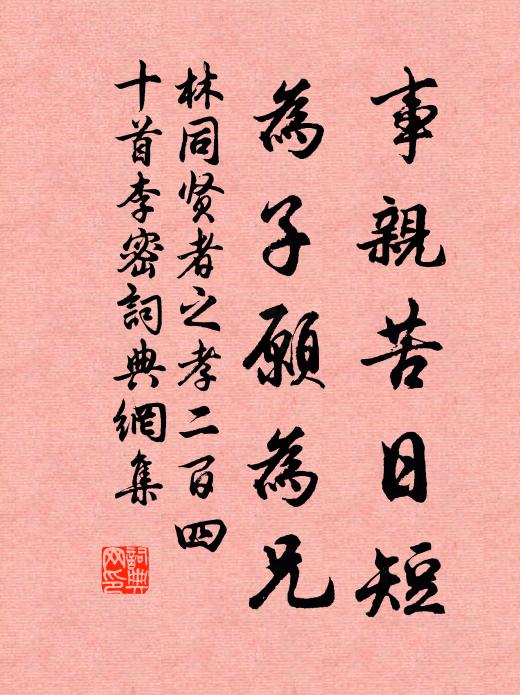 事親苦日短
為子願為兄
林同贤者之孝二百四
十首李密詞典網集
詞典
网印